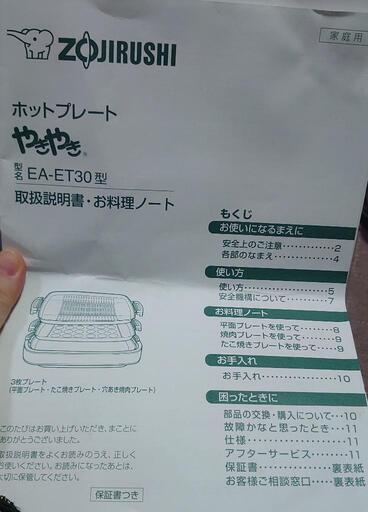 ZOJIRUSHI
家庭用
ホットプレート
やきやき®
型名 EA-ET30型
取扱説明書・お料理ノート
もくじ
お使いになるまえに
安全上のご注意…………2
各部のなまえ……………4
使い方
使い方……………………5
安全機構について………7
お料理ノート
平面プレートを使って……8
焼肉プレートを使って……9
たこ焼きプレートを使って…9
お手入れ
お手入れ…………………10
困ったときに
部品の交換・購入について…10
故障かなと思ったとき…11
仕様………………………11
アフターサービス………11
保証書……………裏表紙
お客様ご相談窓口…裏表紙
3枚プレート
(平面プレート・たこ焼きプレート・穴あき焼肉プレート)
このたびはお買い上げいただき、まことに
ありがとうございました。
取扱説明書をよくお読みのうえ、正しく
お使いください。お読みになったあとは、
大切に保管してください。
保証書つき